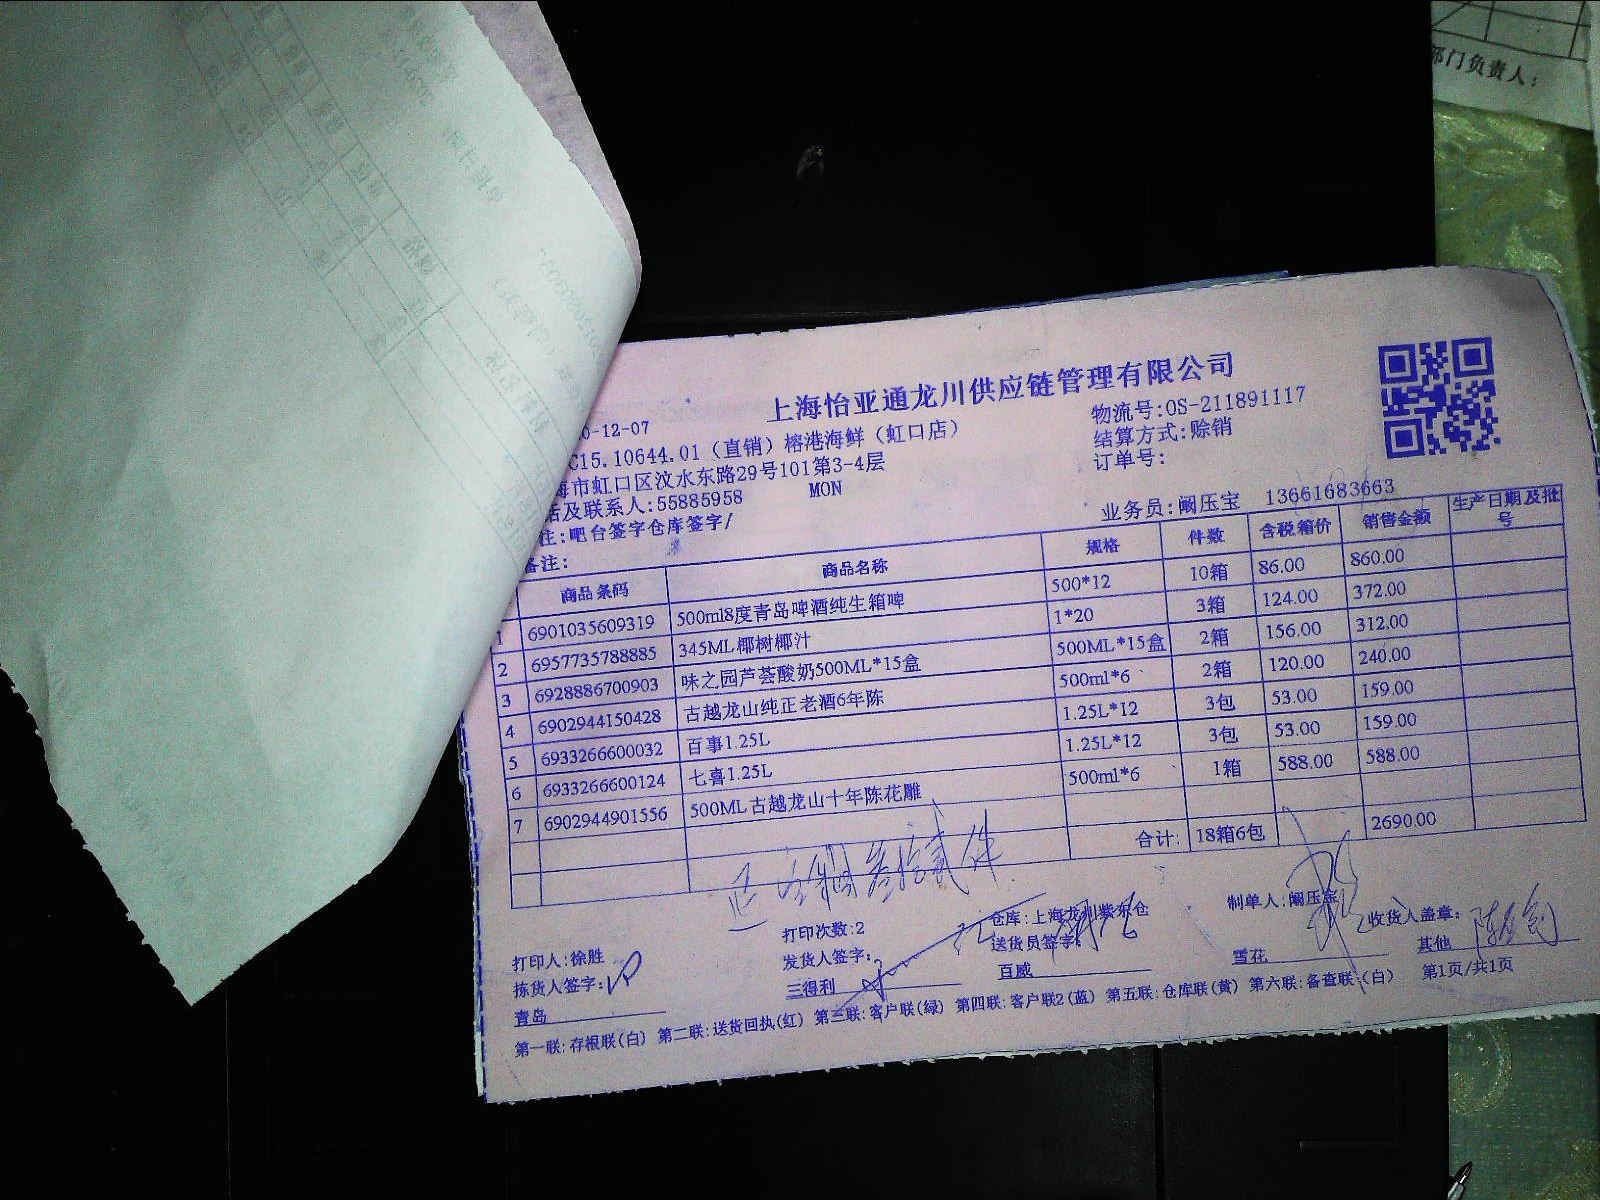 部门负责人:
上海怡亚通龙川供应链管理有限公司
0-12-07
物流号:OS-211891117
C15.10644.01（直销）榕港海鲜（虹口店）
结算方式:赊销
海市虹口区汶水东路29号101第3-4层
订单号:
话及联系人:55885958 MON
业务员:阚压宝 13661683663
注:吧台签字仓库签字/
备注:
商品条码 商品名称 规格 件数 含税箱价 销售金额 生产日期及批号
1 6901035609319 500ml8度青岛啤酒纯生箱啤 500*12 10箱 86.00 860.00
2 6957735788885 345ML椰树椰汁 1*20 3箱 124.00 372.00
3 6928886700903 味之园芦荟酸奶500ML*15盒 500ML*15盒 2箱 156.00 312.00
4 6902944150428 古越龙山纯正老酒6年陈 500ml*6 2箱 120.00 240.00
5 6933266600032 百事1.25L 1.25L*12 3包 53.00 159.00
6 6933266600124 七喜1.25L 1.25L*12 3包 53.00 159.00
7 6902944901556 500ML古越龙山十年陈花雕 500ml*6 1箱 588.00 588.00
合计: 18箱6包 2690.00
打印人:徐胜 打印次数:2 仓库:上海龙川紫东仓 制单人:阚压宝
拣货人签字: 发货人签字: 送货员签字: 收货人盖章:
青岛 三得利 百威 雪花 其他
第一联:存根联(白) 第二联:送货回执(红) 第三联:客户联(绿) 第四联:客户联2(蓝) 第五联:仓库联(黄) 第六联:备查联:(白) 第1页/共1页